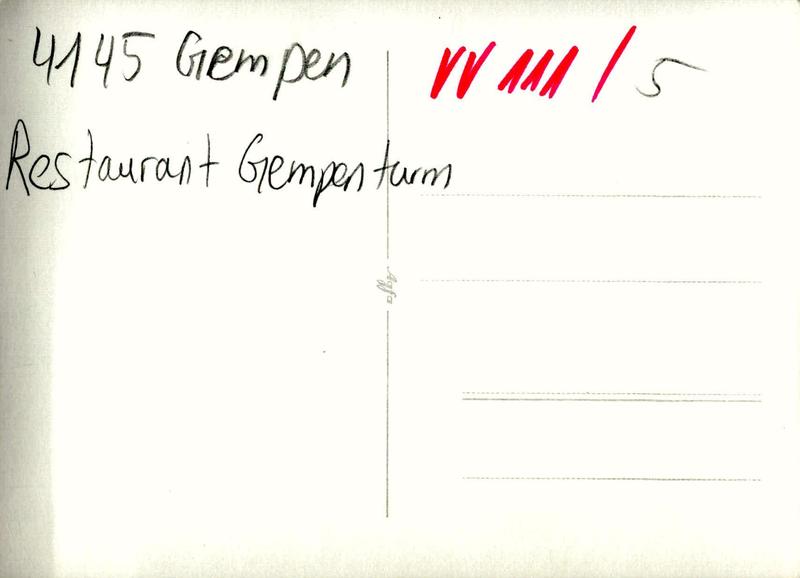 4145 Gempen
VV 111 / 5
Restaurant Gempenturm
Agfa